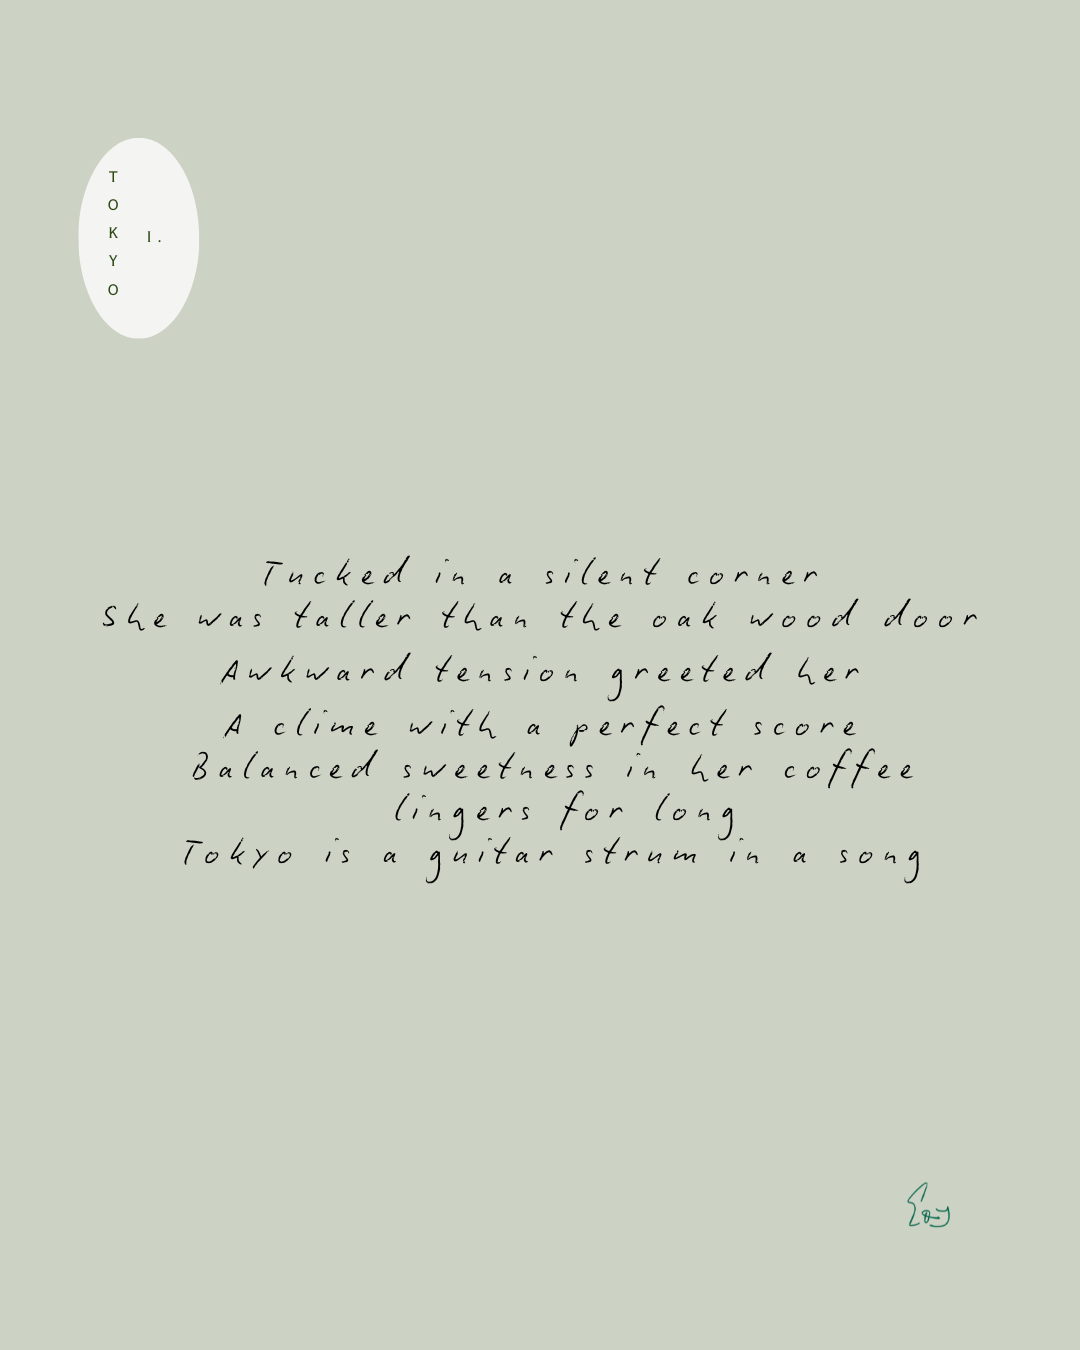 TOKYO
I.
Tucked in a silent corner
She was taller than the oak wood door
Awkward tension greeted her
A clime with a perfect score
Balanced sweetness in her coffee
lingers for long
Tokyo is a guitar strum in a song